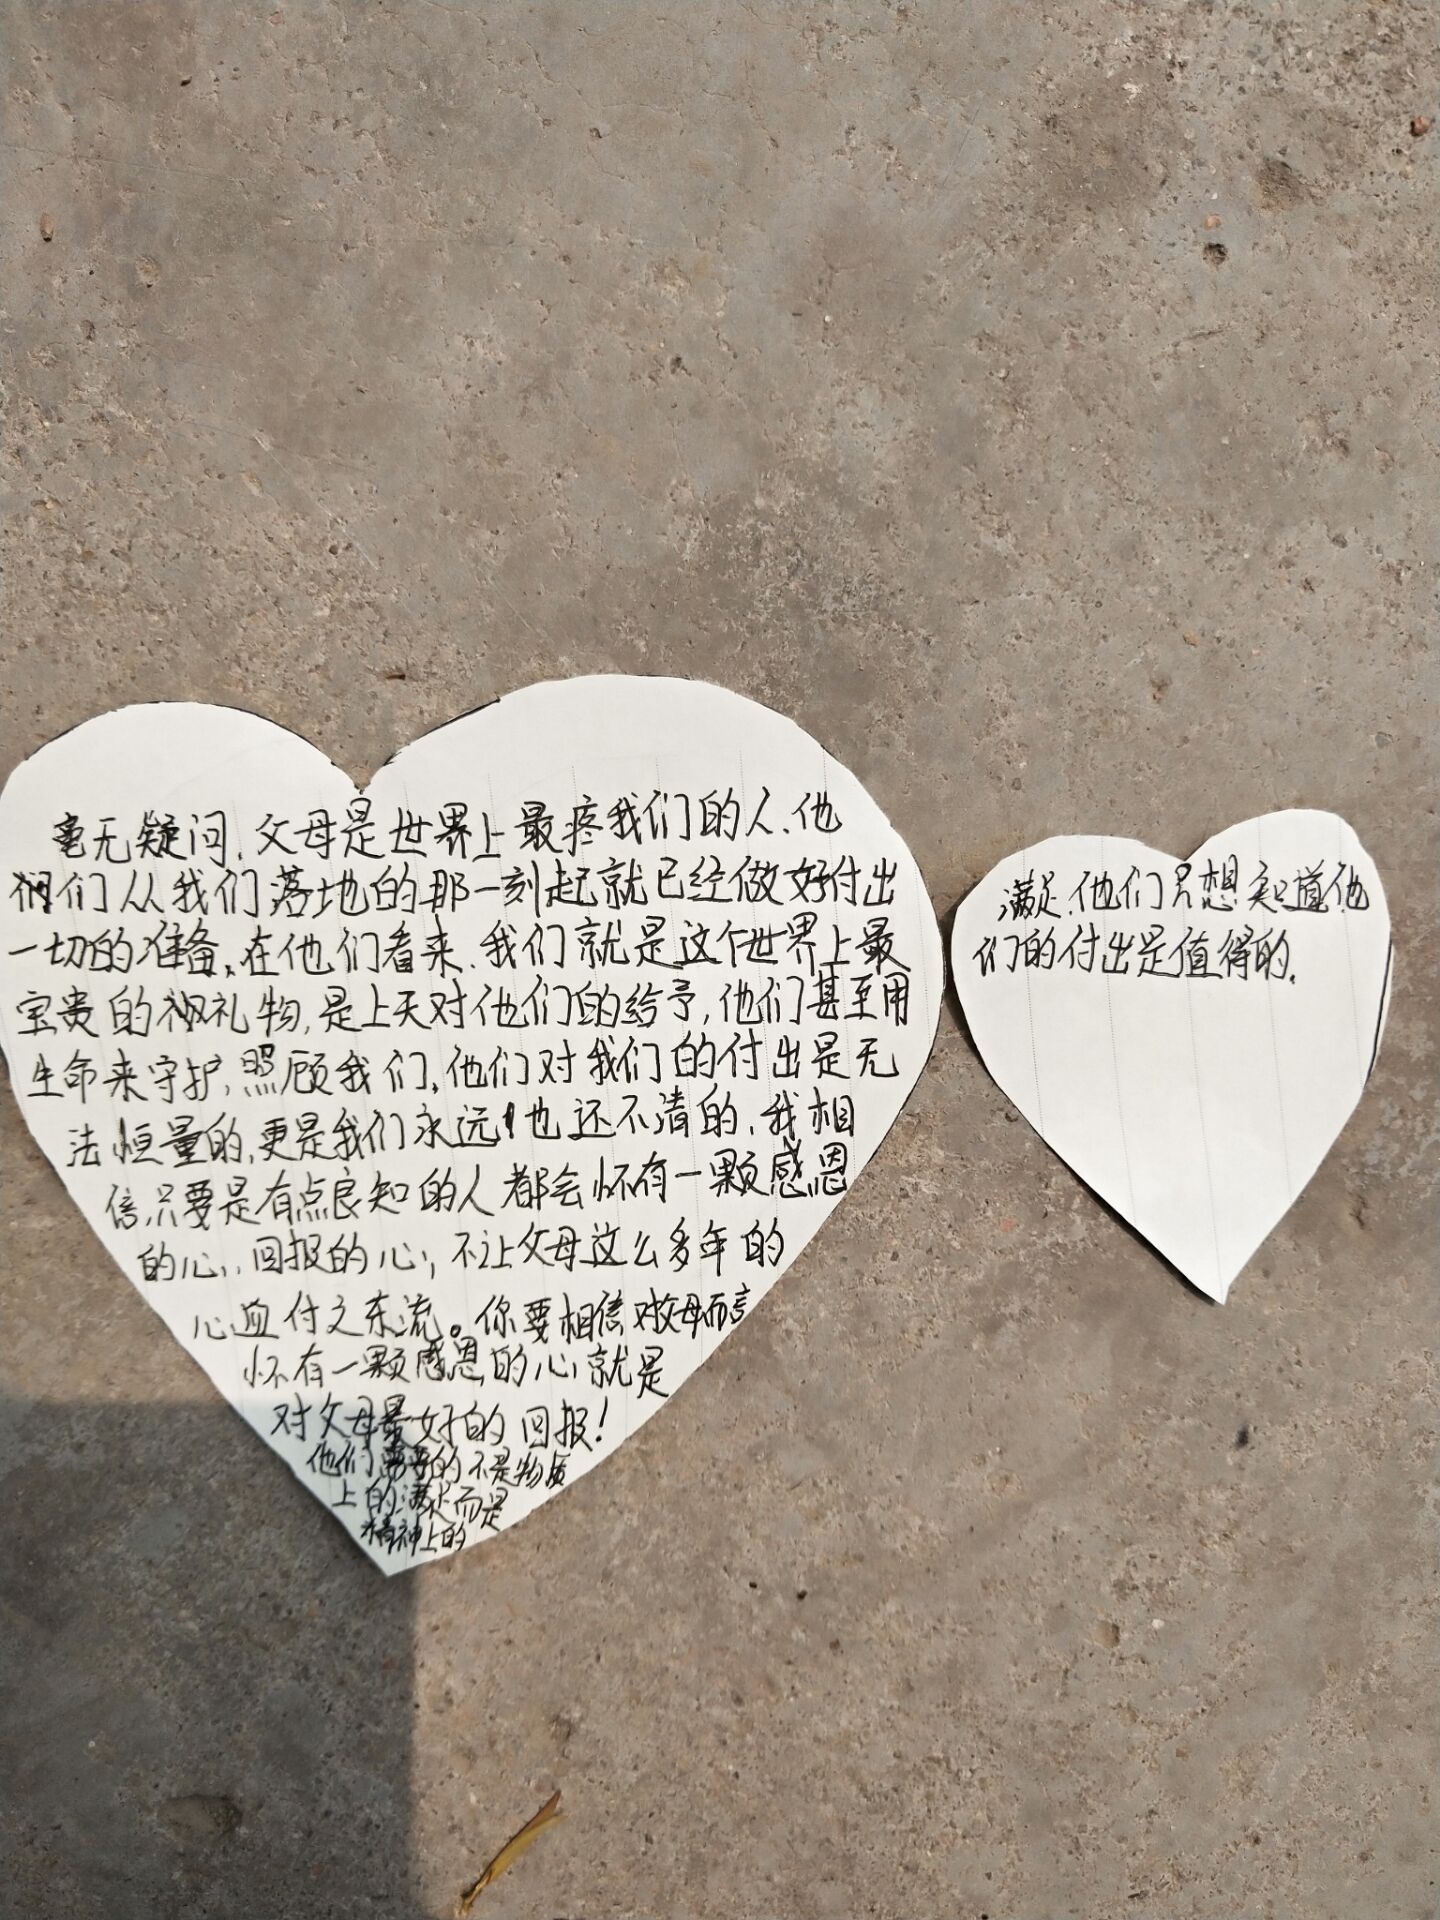 毫无疑问,父母是世界上最疼我们的人,他
们从我们落地的那一刻起就已经做好付出
一切的准备,在他们看来,我们就是这个世界上最
宝贵的礼物,是上天对他们的给予,他们甚至用
生命来守护,照顾我们,他们对我们的付出是无
法恒量的,更是我们永远也还不清的,我相
信,只要是有点良知的人都会怀有一颗感恩
的心,回报的心,不让父母这么多年的
心血付之东流。你要相信对父母而言
怀有一颗感恩的心就是
对父母最好的回报!
他们需要的不是物质
上的满足而是
精神上的
满足,他们只想知道他
们的付出是值得的.